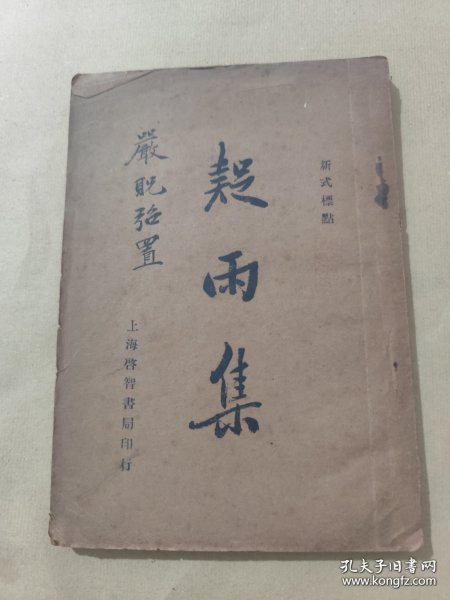 新式標點
疑雨集
嚴貺置
上海啓智書局印行
孔夫子旧书网
www.kongfz.com